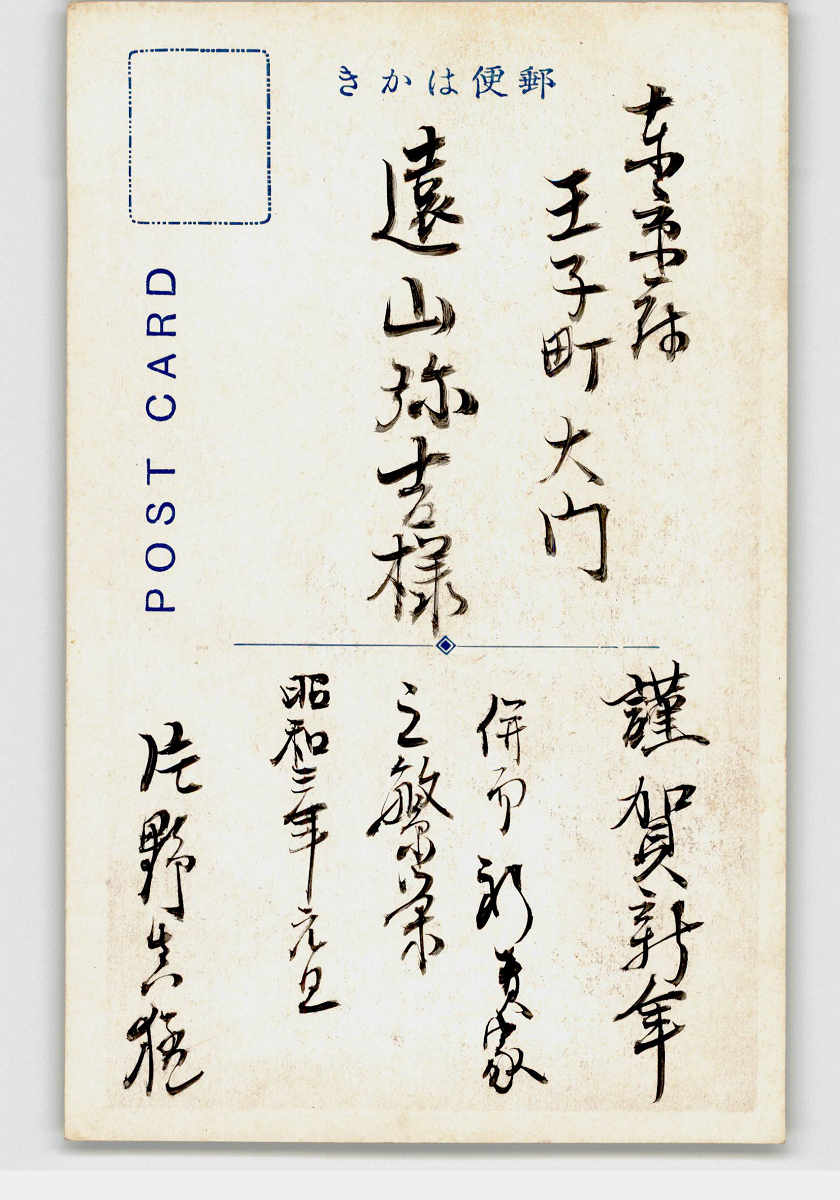 郵便はかき
東京府
王子町大门
遠山弥吉様
POST CARD
謹賀新年
併而祈貴家
之繁栄
昭和三年元旦
片野真猛